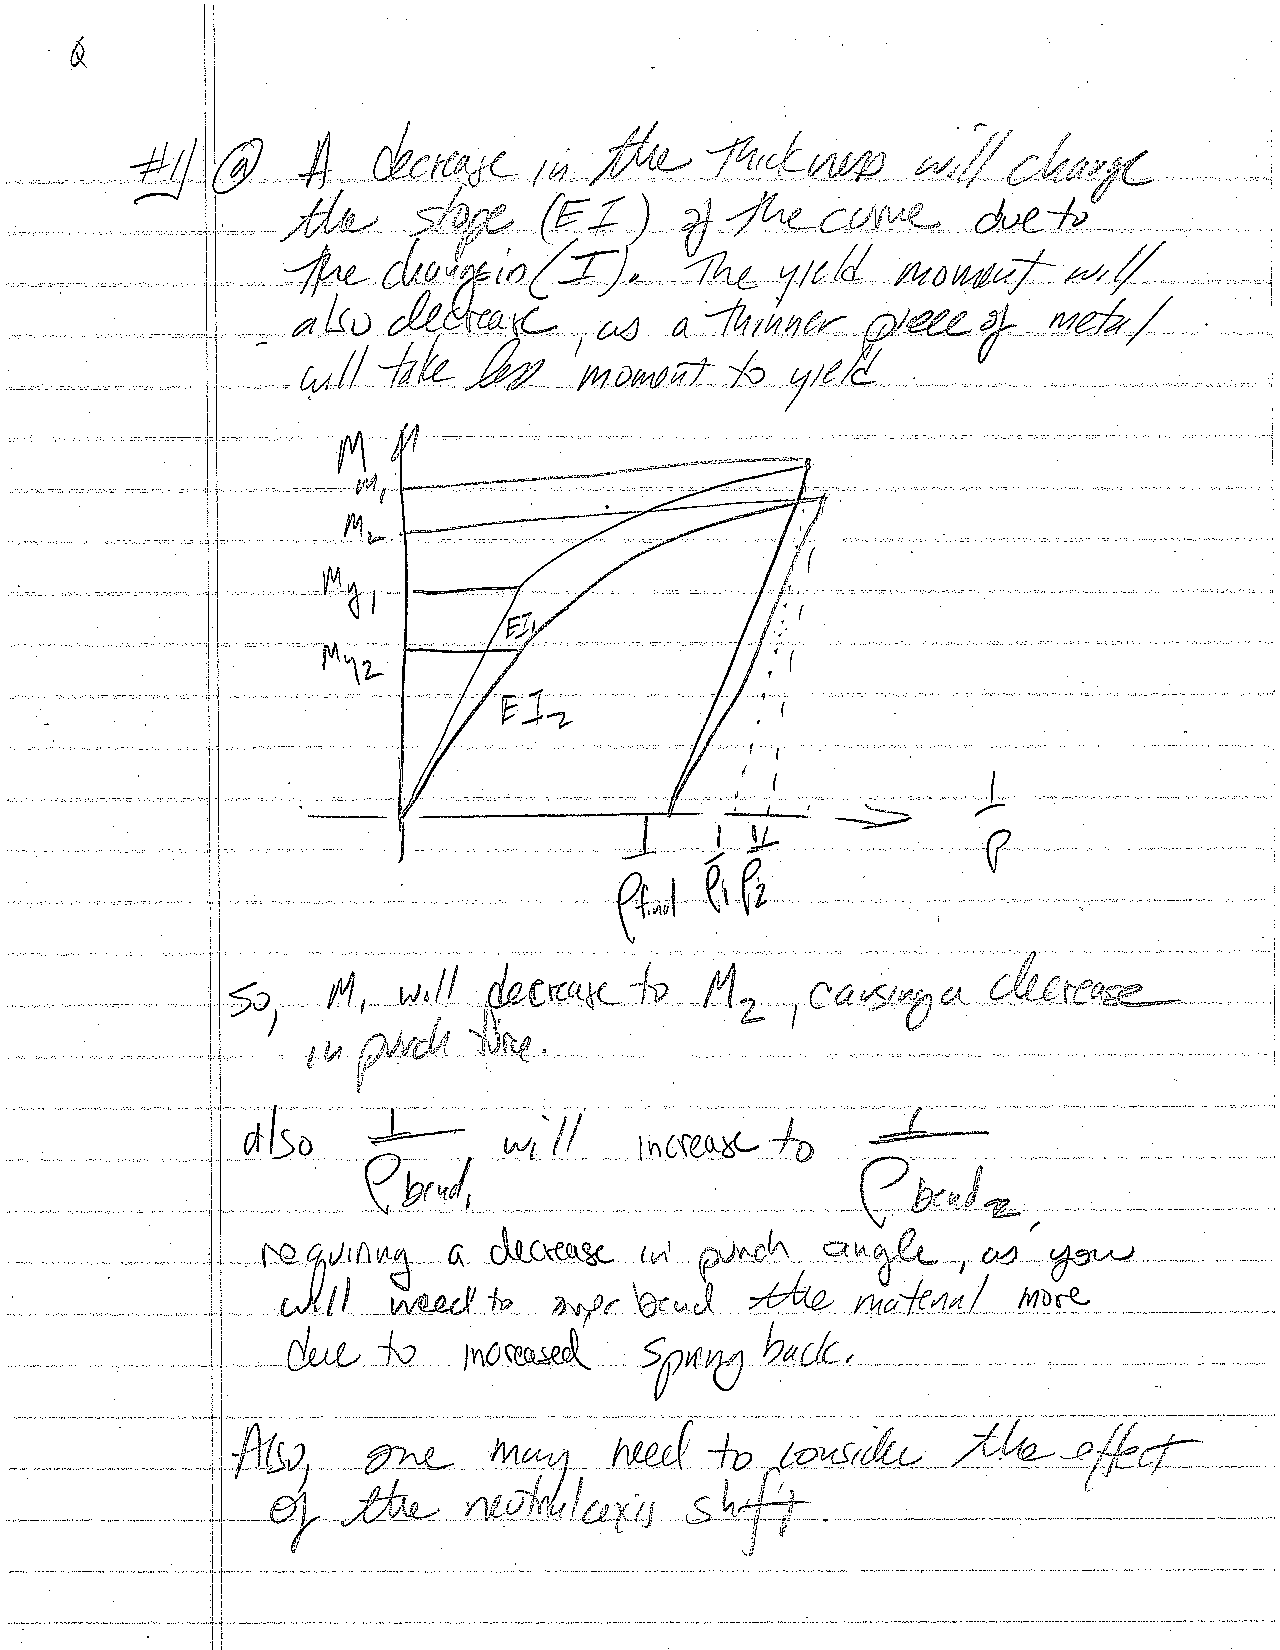 #1) (a) A decrease in the thickness will change
the slope (EI) of the curve due to
the change in (I). The yield moment will
also decrease, as a thinner piece of metal
will take less moment to yield.
M
M1
M2
My1
EI1
My2
EI2
1/ρfinal 1/ρ1 1/ρ2 1/ρ
So, M1 will decrease to M2, causing a decrease
in punch force.
also 1/ρbend1 will increase to 1/ρbend2,
requiring a decrease in punch angle, as you
will need to over bend the material more
due to increased spring back.
Also, one may need to consider the effect
of the neutral axis shift.